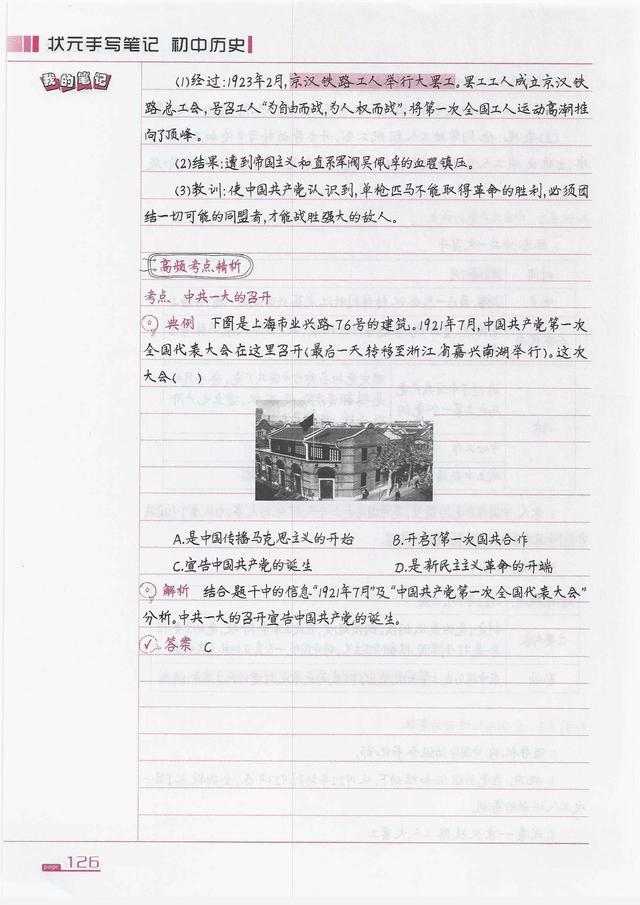 状元手写笔记 初中历史
我的笔记
(1)经过:1923年2月,京汉铁路工人举行大罢工。罢工工人成立京汉铁
路总工会,号召工人“为自由而战,为人权而战”,将第一次全国工人运动高潮推
向了顶峰。
(2)结果:遭到帝国主义和直系军阀吴佩孚的血腥镇压。
(3)教训:使中国共产党认识到,单枪匹马不能取得革命的胜利,必须团
结一切可能的同盟者,才能战胜强大的敌人。
高频考点精析
考点 中共一大的召开
典例 下图是上海市业兴路76号的建筑。1921年7月,中国共产党第一次
全国代表大会在这里召开(最后一天转移至浙江省嘉兴南湖举行)。这次
大会( )
A.是中国传播马克思主义的开始 B.开启了第一次国共合作
C.宣告中国共产党的诞生 D.是新民主主义革命的开端
解析 结合题干中的信息“1921年7月”及“中国共产党第一次全国代表大会”
分析。中共一大的召开宣告中国共产党的诞生。
答案 C
page 126